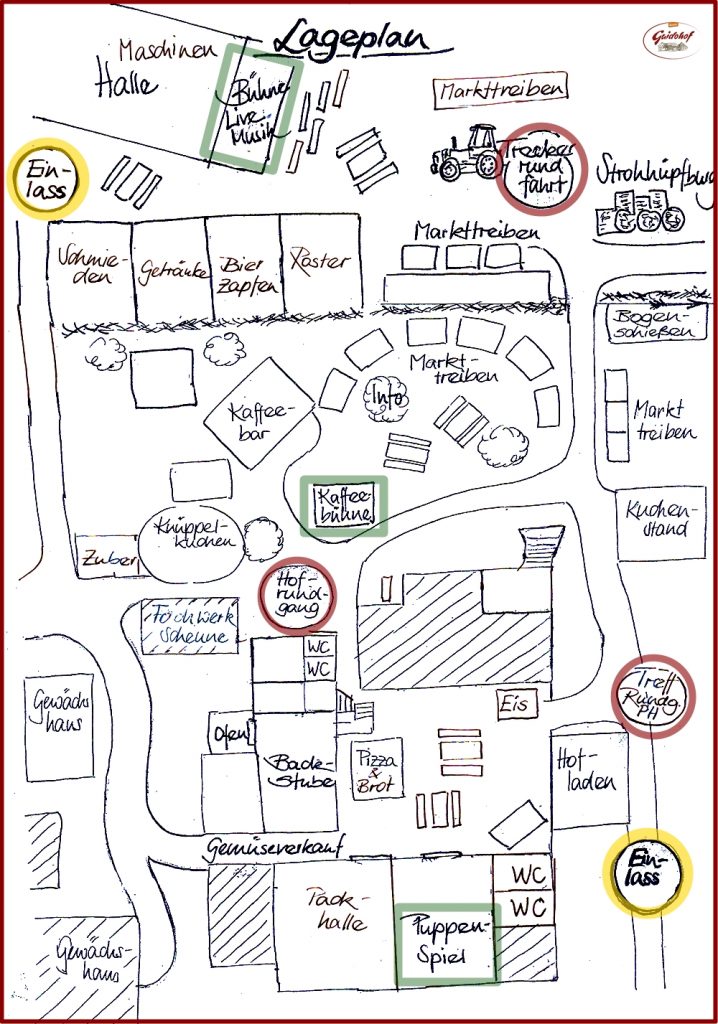 Lageplan
Guidohof
Maschinen
Halle
Bühne
Live
Musik
Markttreiben
Ein-
lass
Trecker
rund
fahrt
Strohhüpfburg
Schmie-
den
Getränke
Bier
Zapfen
Raster
Markttreiben
Bogen-
schießen
Markt-
treiben
Info
Kaffee-
bar
Markt
treiben
Kaffee-
bühne
Kuchen-
stand
Knüppel-
kuchen
Zuber
Hof-
rund-
gang
Fachwerk
Scheune
WC
WC
Treff
Rundg.
PH
Gewächs
haus
Eis
Ofen
Back-
stube
Pizza
&
Brot
Hof-
laden
Gemüseverkauf
Ein-
lass
Pack-
halle
WC
WC
Puppen-
Spiel
Gewächs-
haus